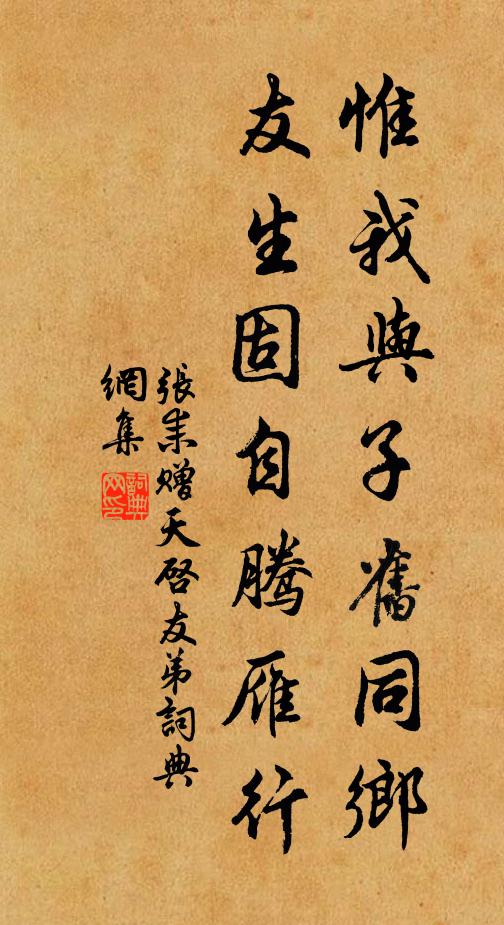 惟我與子舊同鄉
友生固自騰雁行
張耒贈天啓友弟詞典
網集
詞典
网印